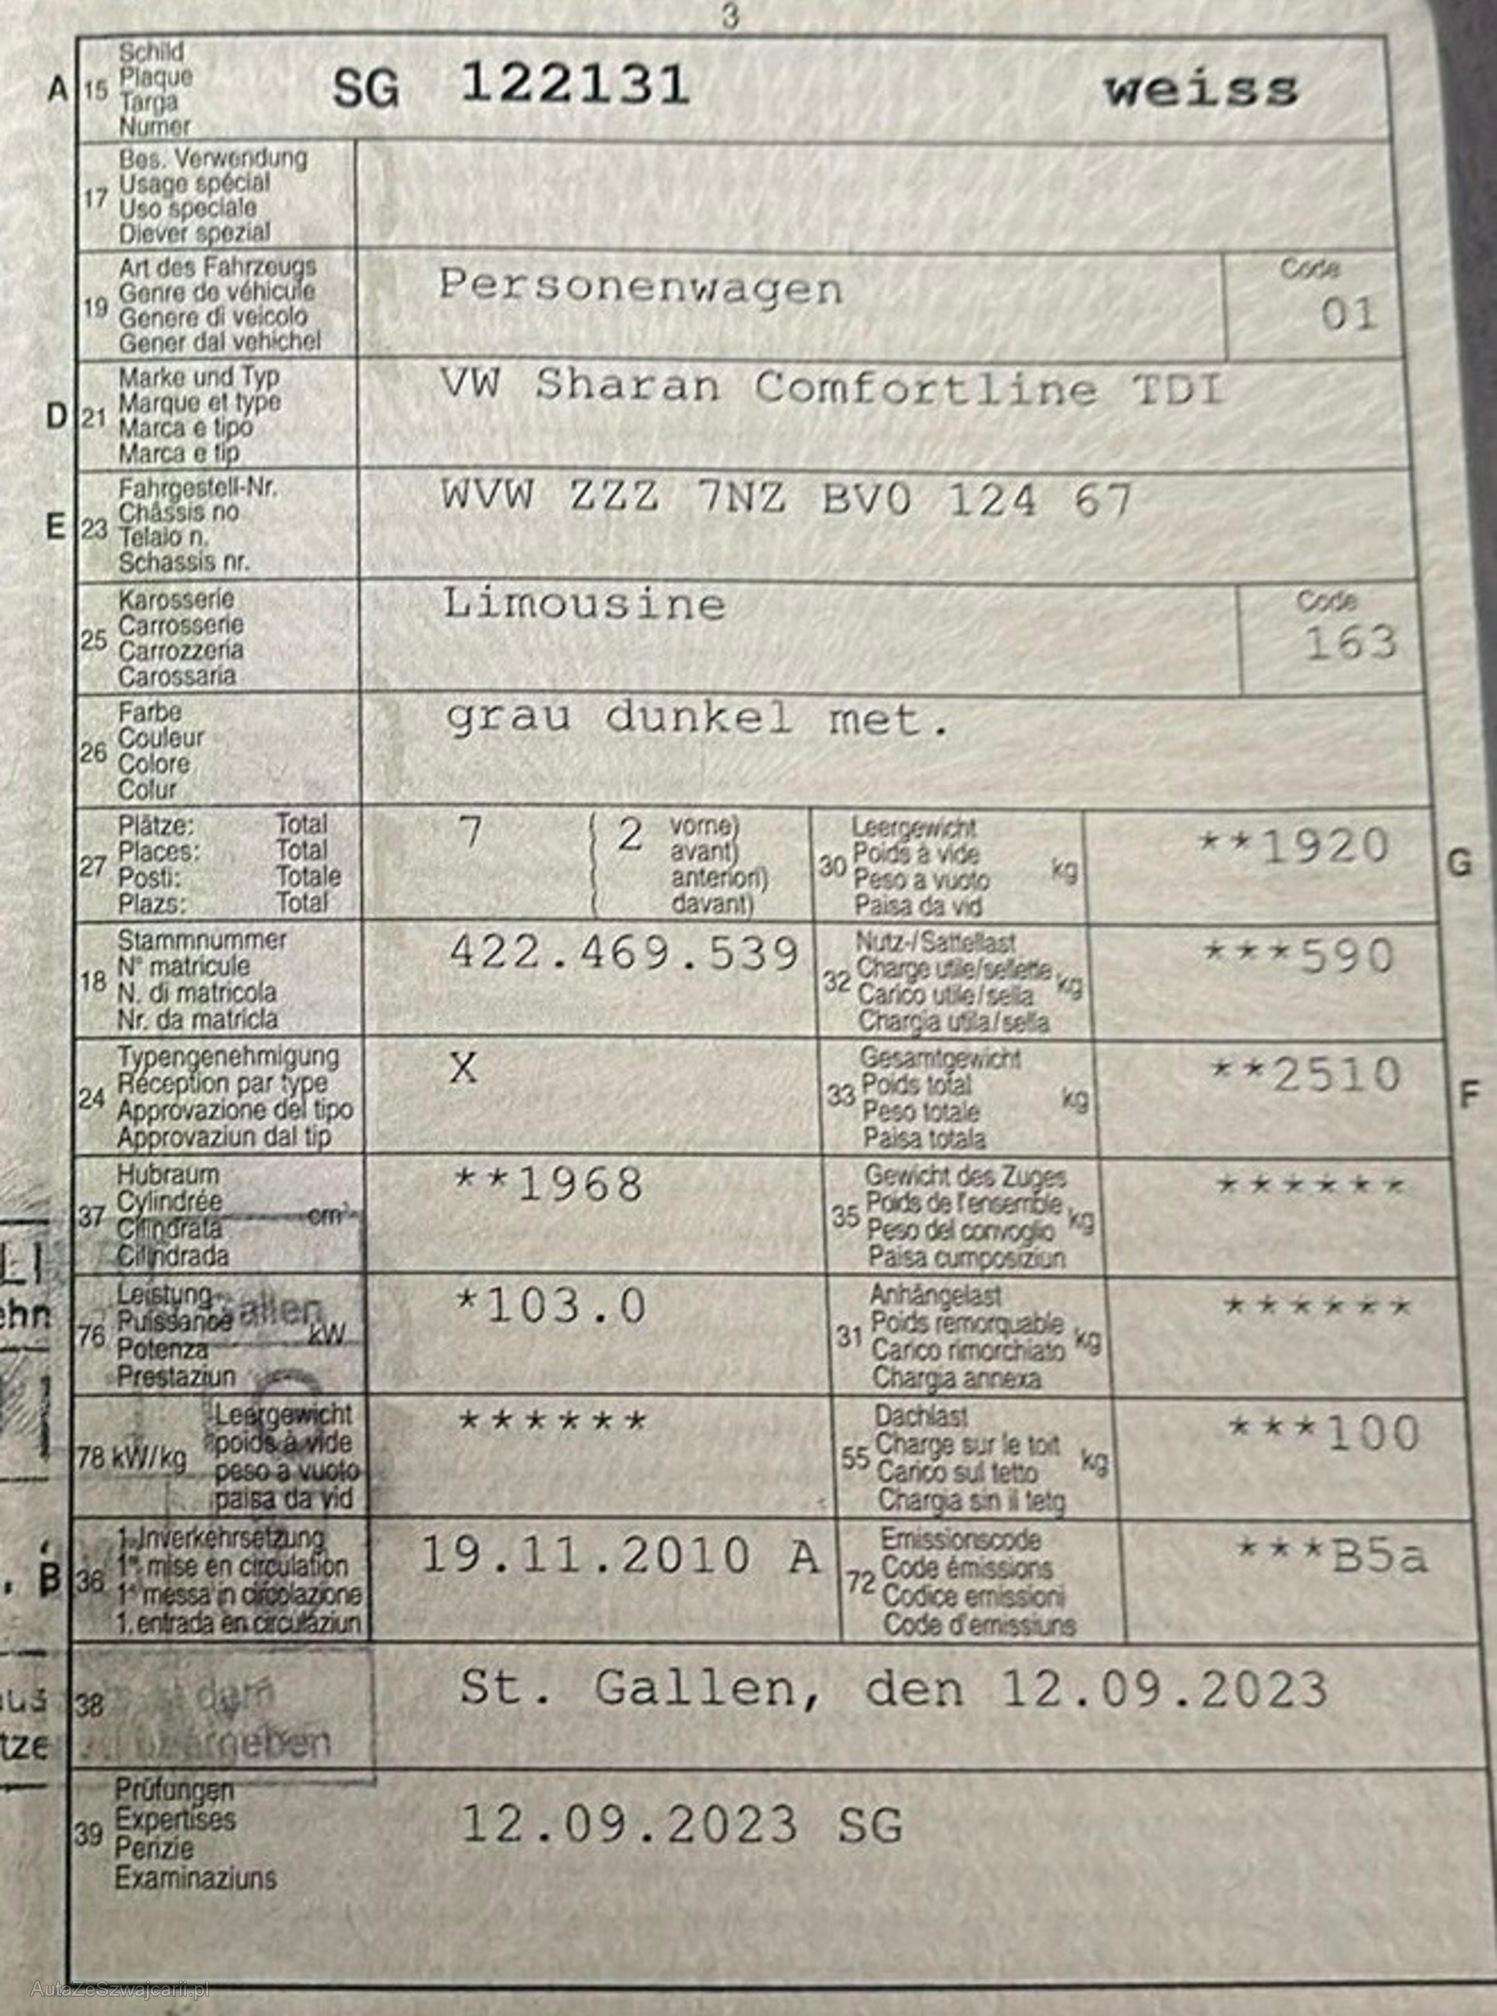 3
A 15 Schild
Plaque
Targa
Numer
SG 122131 weiss
17 Bes. Verwendung
Usage spécial
Uso speciale
Diever spezial
19 Art des Fahrzeugs
Genre de véhicule
Genere di veicolo
Gener dal vehichel
Personenwagen
Code
01
D 21 Marke und Typ
Marque et type
Marca e tipo
Marca e tip
VW Sharan Comfortline TDI
E 23 Fahrgestell-Nr.
Châssis no
Telaio n.
Schassis nr.
WVW ZZZ 7NZ BV0 124 67
25 Karosserie
Carrosserie
Carrozzeria
Carossaria
Limousine
Code
163
26 Farbe
Couleur
Colore
Colur
grau dunkel met.
27 Plätze: Total
Places: Total
Posti: Totale
Plazs: Total
7 ( 2 vorne)
( avant)
( anteriori)
( davant)
30 Leergewicht
Poids à vide
Peso a vuoto
Paisa da vid
kg
**1920 G
18 Stammnummer
N° matricule
N. di matricola
Nr. da matricla
422.469.539
32 Nutz-/Sattellast
Charge utile/sellette
Carico utile/sella
Chargia utila/sella
kg
***590
24 Typengenehmigung
Réception par type
Approvazione del tipo
Approvaziun dal tip
X
33 Gesamtgewicht
Poids total
Peso totale
Paisa totala
kg
**2510 F
37 Hubraum
Cylindrée
Cilindrata
Cilindrada
cm³
**1968
35 Gewicht des Zuges
Poids de l'ensemble
Peso del convoglio
Paisa cumposiziun
kg
******
76 Leistung
Puissance
Potenza
Prestaziun
kW
*103.0
31 Anhängelast
Poids remorquable
Carico rimorchiato
Chargia annexa
kg
******
78 kW/kg Leergewicht
poids à vide
peso a vuoto
paisa da vid
******
55 Dachlast
Charge sur le toit
Carico sul tetto
Chargia sin il tetg
kg
***100
B 36 1. Inverkehrsetzung
1re mise en circulation
1a messa in circolazione
1. entrada en circulaziun
19.11.2010 A
72 Emissionscode
Code émissions
Codice emissioni
Code d'emissiuns
***B5a
38 St. Gallen, den 12.09.2023
39 Prüfungen
Expertises
Perizie
Examinaziuns
12.09.2023 SG
AutaZeSzwajcarii.pl